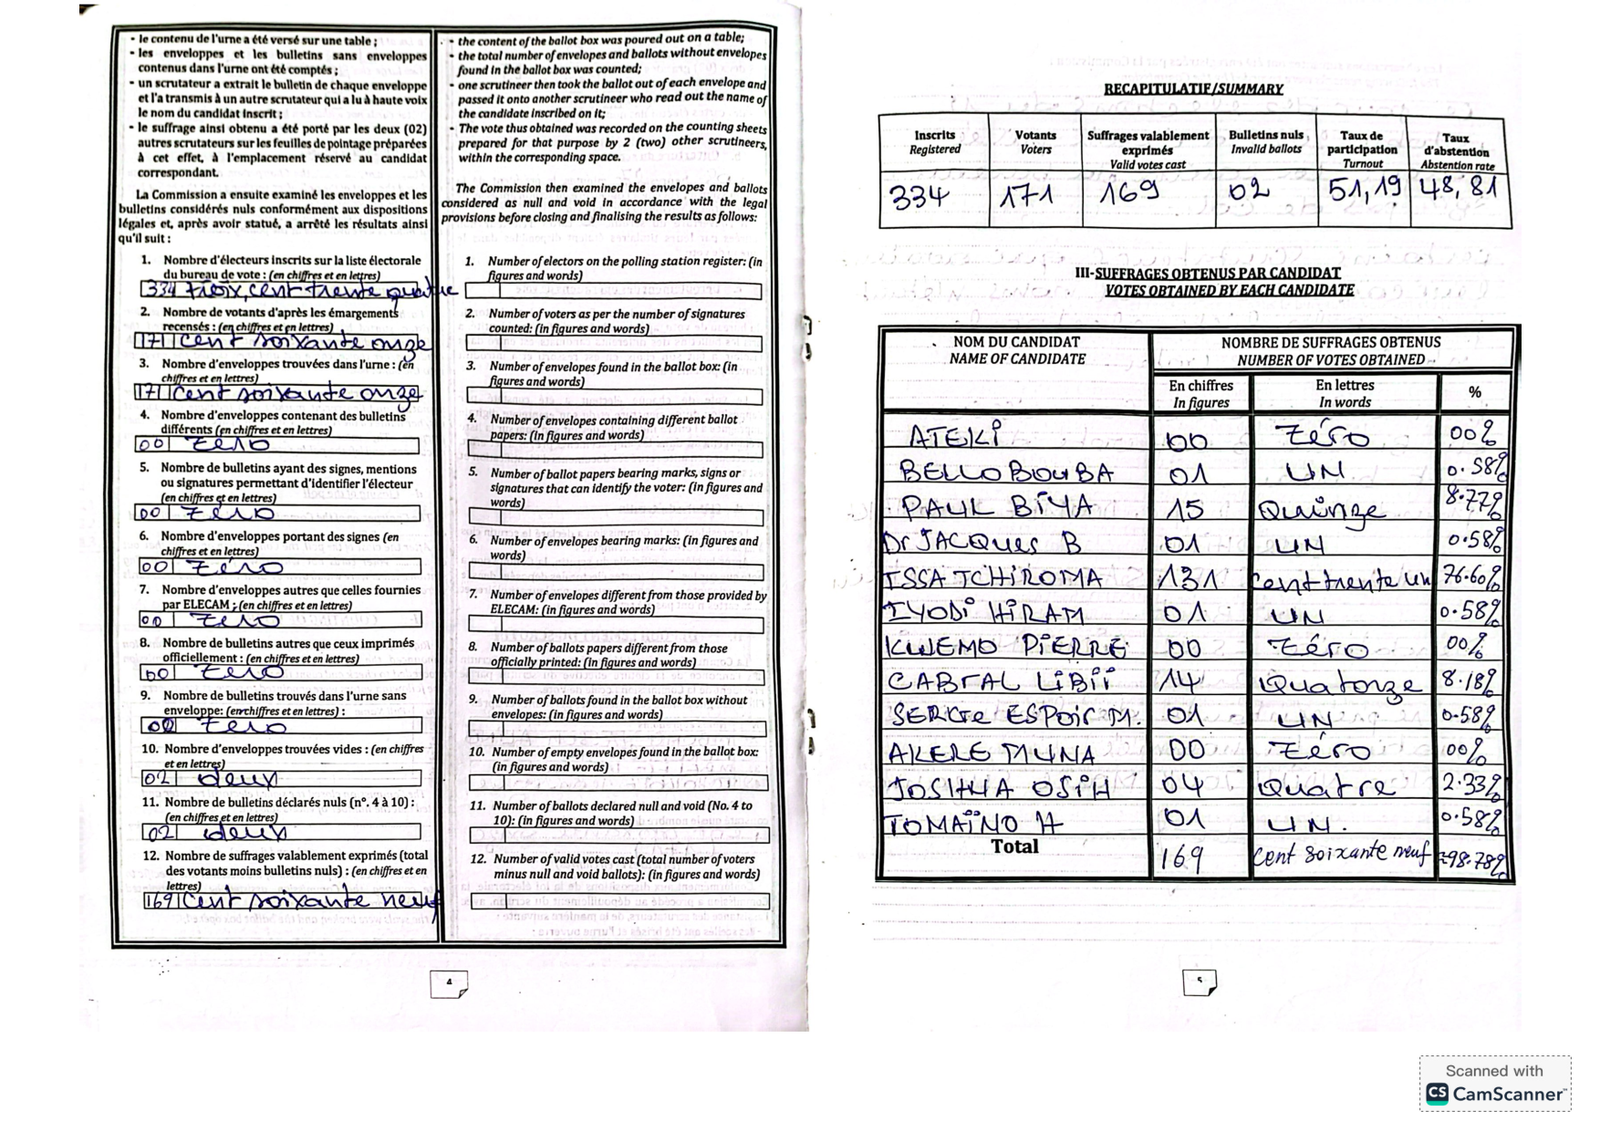 - le contenu de l'urne a été versé sur une table ;
- les enveloppes et les bulletins sans enveloppes
contenus dans l'urne ont été comptés ;
- un scrutateur a extrait le bulletin de chaque enveloppe
et l'a transmis à un autre scrutateur qui a lu à haute voix
le nom du candidat inscrit ;
- le suffrage ainsi obtenu a été porté par les deux (02)
autres scrutateurs sur les feuilles de pointage préparées
à cet effet, à l'emplacement réservé au candidat
correspondant.
La Commission a ensuite examiné les enveloppes et les
bulletins considérés nuls conformément aux dispositions
légales et, après avoir statué, a arrêté les résultats ainsi
qu'il suit :
1. Nombre d'électeurs inscrits sur la liste électorale
du bureau de vote : (en chiffres et en lettres)
334 troix,cent trente quatre
2. Nombre de votants d'après les émargements
recensés : (en chiffres et en lettres)
171 cent soixante onze
3. Nombre d'enveloppes trouvées dans l'urne : (en
chiffres et en lettres)
171 cent soixante onze
4. Nombre d'enveloppes contenant des bulletins
différents (en chiffres et en lettres)
00 Zéro
5. Nombre de bulletins ayant des signes, mentions
ou signatures permettant d'identifier l'électeur
(en chiffres et en lettres)
00 Zéro
6. Nombre d'enveloppes portant des signes (en
chiffres et en lettres)
00 Zéro
7. Nombre d'enveloppes autres que celles fournies
par ELECAM ; (en chiffres et en lettres)
00 Zéro
8. Nombre de bulletins autres que ceux imprimés
officiellement : (en chiffres et en lettres)
00 Zéro
9. Nombre de bulletins trouvés dans l'urne sans
enveloppe: (en chiffres et en lettres) :
00 Zéro
10. Nombre d'enveloppes trouvées vides : (en chiffres
et en lettres)
02 deux
11. Nombre de bulletins déclarés nuls (n°. 4 à 10) :
(en chiffres et en lettres)
02 deux
12. Nombre de suffrages valablement exprimés (total
des votants moins bulletins nuls) : (en chiffres et en
lettres)
169 cent soixante neuf
- the content of the ballot box was poured out on a table;
- the total number of envelopes and ballots without envelopes
found in the ballot box was counted;
- one scrutineer then took the ballot out of each envelope and
passed it onto another scrutineer who read out the name of
the candidate inscribed on it;
- The vote thus obtained was recorded on the counting sheets
prepared for that purpose by 2 (two) other scrutineers,
within the corresponding space.
The Commission then examined the envelopes and ballots
considered as null and void in accordance with the legal
provisions before closing and finalising the results as follows:
1. Number of electors on the polling station register: (in
figures and words)
2. Number of voters as per the number of signatures
counted: (in figures and words)
3. Number of envelopes found in the ballot box: (in
figures and words)
4. Number of envelopes containing different ballot
papers: (in figures and words)
5. Number of ballot papers bearing marks, signs or
signatures that can identify the voter: (in figures and
words)
6. Number of envelopes bearing marks: (in figures and
words)
7. Number of envelopes different from those provided by
ELECAM: (in figures and words)
8. Number of ballots papers different from those
officially printed: (in figures and words)
9. Number of ballots found in the ballot box without
envelopes: (in figures and words)
10. Number of empty envelopes found in the ballot box:
(in figures and words)
11. Number of ballots declared null and void (No. 4 to
10): (in figures and words)
12. Number of valid votes cast (total number of voters
minus null and void ballots): (in figures and words)
4
RECAPITULATIF/SUMMARY
Inscrits Registered | Votants Voters | Suffrages valablement exprimés Valid votes cast | Bulletins nuls Invalid ballots | Taux de participation Turnout | Taux d'abstention Abstention rate
334 171 169 02 51,19 48,81
III-SUFFRAGES OBTENUS PAR CANDIDAT
VOTES OBTAINED BY EACH CANDIDATE
NOM DU CANDIDAT NOMBRE DE SUFFRAGES OBTENUS
NAME OF CANDIDATE NUMBER OF VOTES OBTAINED
En chiffres En lettres %
In figures In words
ATEKI 00 Zéro 00%
BELLO BOUBA 01 UN 0.58%
PAUL BIYA 15 Quinze 8.77%
Dr JACQUES B 01 UN 0.58%
ISSA TCHIROMA 131 cent trente un 76.60%
IYODI HIRAM 01 UN 0.58%
KWEMO PIERRE 00 Zéro 00%
CABRAL LIBII 14 Quatorze 8.18%
SERGE ESPOIR M. 01 UN 0.58%
AKERE MUNA 00 Zéro 00%
JOSHUA OSIH 04 Quatre 2.33%
TOMAÏNO H 01 UN. 0.58%
Total 169 cent soixante neuf 98.78%
5
Scanned with
CS CamScanner